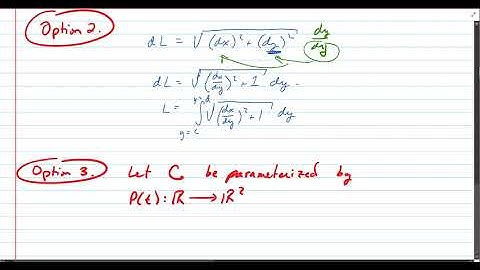 Option 2.
dL = √((dx)² + (dy)²) dy/dy
dL = √((dx/dy)² + 1) dy.
L = ∫_{y=c}^{y=d} √((dx/dy)² + 1) dy
Option 3. Let C be parameterized by
P(t): ℝ → ℝ²